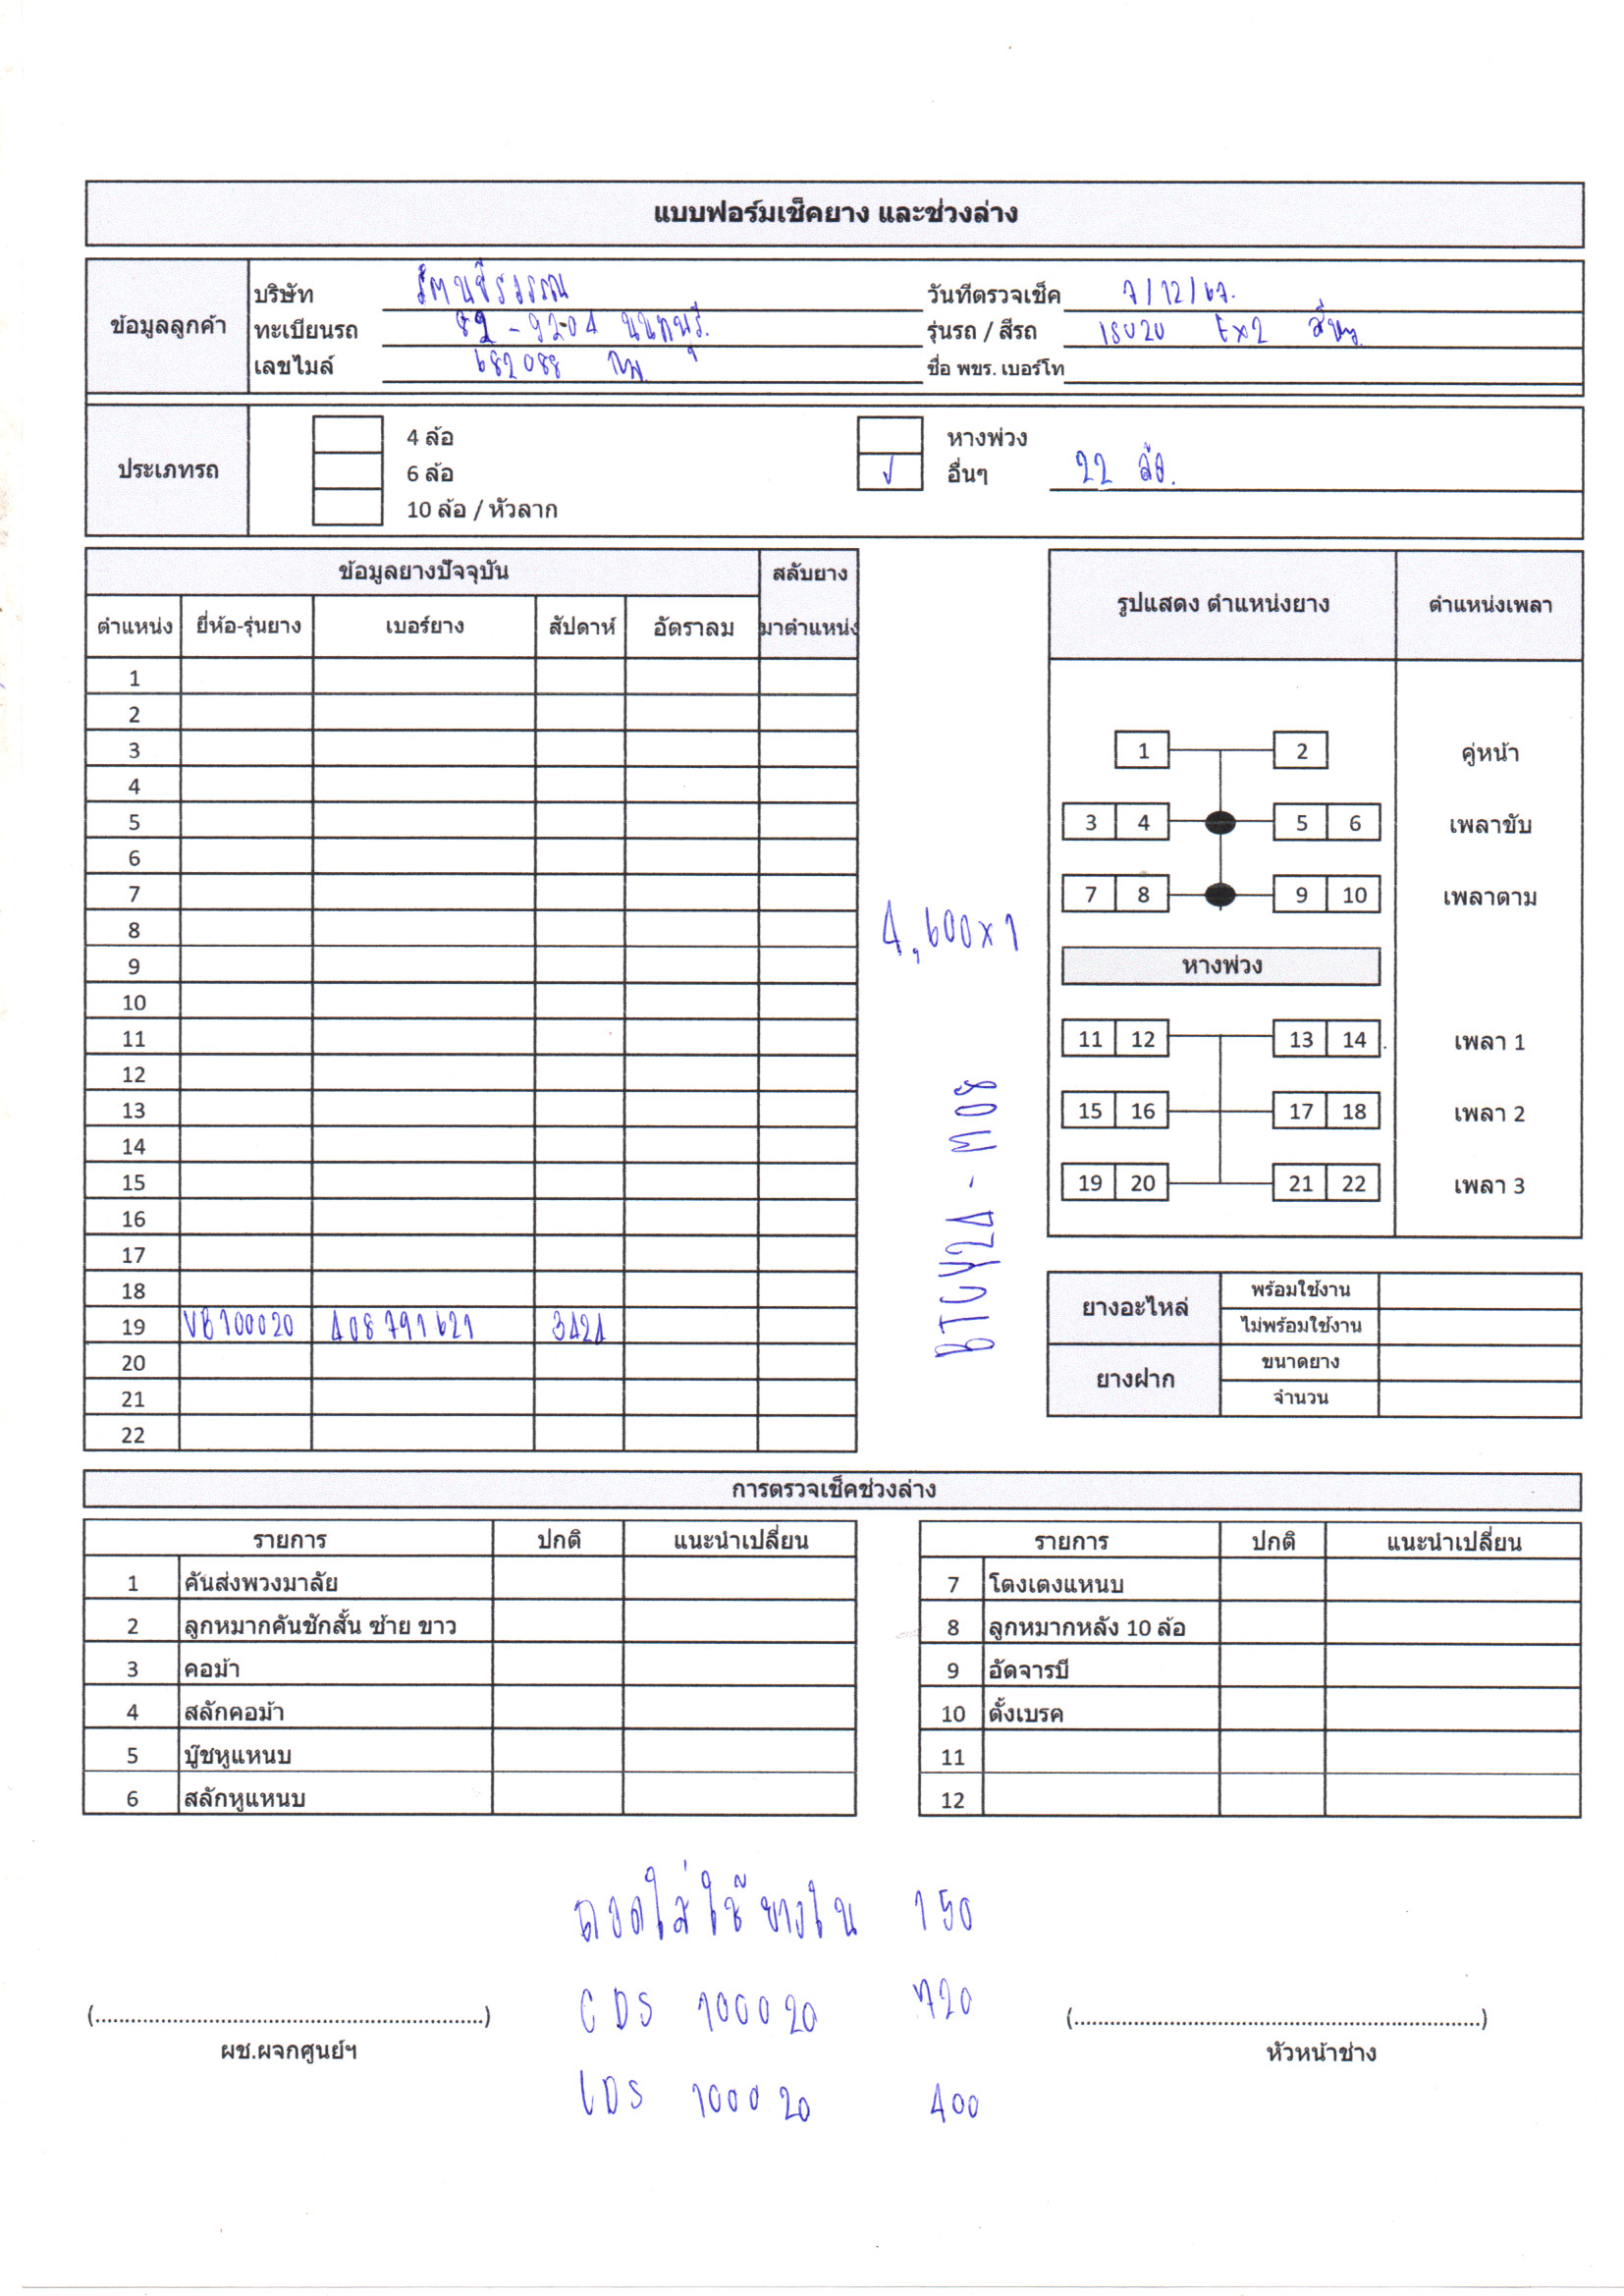 แบบฟอร์มเช็คยาง และช่วงล่าง
ข้อมูลลูกค้า
บริษัท รัตนชีรวรรณ
วันที่ตรวจเช็ค 7/12/67.
ทะเบียนรถ 82-9204 นนทบุรี.
รุ่นรถ / สีรถ ISUZU EX2
เลขไมล์ 682088 กม
ชื่อ พขร. เบอร์โท
ประเภทรถ
4 ล้อ
6 ล้อ
10 ล้อ / หัวลาก
หางพ่วง
✓ อื่นๆ 22 ล้อ.
ข้อมูลยางปัจจุบัน สลับยาง
ตำแหน่ง ยี่ห้อ-รุ่นยาง เบอร์ยาง สัปดาห์ อัตราลม มาตำแหน่ง
1
2
3
4
5
6
7
8
9
10
11
12
13
14
15
16
17
18
19 VB100020 408791621 3424
20
21
22
4,600x1
BTGY24-M08
รูปแสดง ตำแหน่งยาง ตำแหน่งเพลา
1 2 คู่หน้า
3 4 5 6 เพลาขับ
7 8 9 10 เพลาตาม
หางพ่วง
11 12 13 14 เพลา 1
15 16 17 18 เพลา 2
19 20 21 22 เพลา 3
ยางอะไหล่
พร้อมใช้งาน
ไม่พร้อมใช้งาน
ยางฝาก
ขนาดยาง
จำนวน
การตรวจเช็คช่วงล่าง
รายการ ปกติ แนะนำเปลี่ยน
1 คันส่งพวงมาลัย
2 ลูกหมากคันชักสั้น ซ้าย ขาว
3 คอม้า
4 สลักคอม้า
5 บู๊ชหูแหนบ
6 สลักหูแหนบ
รายการ ปกติ แนะนำเปลี่ยน
7 โตงเตงแหนบ
8 ลูกหมากหลัง 10 ล้อ
9 อัดจารบี
10 ตั้งเบรค
11
12
ถอดใส่ใช้ยางใน 150
CDS 100020 720
CDS 100020 400
(....................................................................)
ผช.ผจกศูนย์ฯ
(....................................................................)
หัวหน้าช่าง